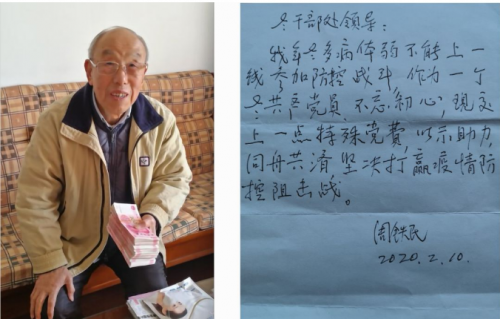 老干部处领导：
我年老多病体弱不能上一
线参加防控战斗，作为一个
老共产党员，不忘初心，现交
上一点特殊党費，以示助力，
同舟共济，坚决打赢疫情防
控阻击战。
周铁民
2020.2.10.